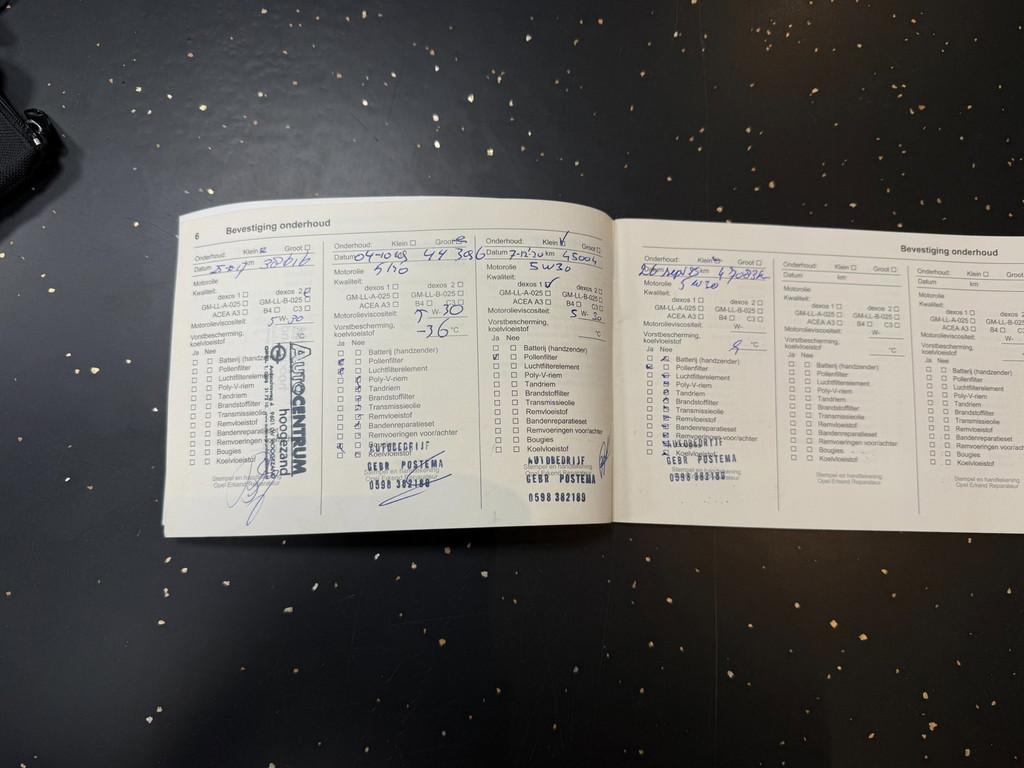 6 Bevestiging onderhoud
Onderhoud: Klein Groot
Datum km 38616
Motorolie
Kwaliteit:
dexos 1 dexos 2
GM-LL-A-025 GM-LL-B-025
ACEA A3 B4 C3
Motorolieviscositeit: 5 W- 30
Vorstbescherming,
koelvloeistof °C
Ja Nee
Batterij (handzender)
Pollenfilter
Luchtfilterelement
Poly-V-riem
Tandriem
Brandstoffilter
Transmissieolie
Remvloeistof
Bandenreparatieset
Remvoeringen voor/achter
Bougies
Koelvloeistof
AUTOCENTRUM
hoogezand
Stempel en handtekening
Opel Erkend Reparateur
Onderhoud: Klein Groot
Datum 04-10 km 44
Motorolie
Kwaliteit:
dexos 1 dexos 2
GM-LL-A-025 GM-LL-B-025
ACEA A3 B4 C3
Motorolieviscositeit: W- 30
Vorstbescherming,
koelvloeistof -36 °C
Ja Nee
Batterij (handzender)
Pollenfilter
Luchtfilterelement
Poly-V-riem
Tandriem
Brandstoffilter
Transmissieolie
Remvloeistof
Bandenreparatieset
Remvoeringen voor/achter
Koelvloeistof
AUTOBEDRIJF
GEBR POSTEMA
Stempel en handtekening
0598 382180
Onderhoud: Klein Groot
Datum 7-12-20 km 45004
Motorolie 5W30
Kwaliteit:
dexos 1 dexos 2
GM-LL-A-025 GM-LL-B-025
ACEA A3 B4 C3
Motorolieviscositeit: 5 W- 30
Vorstbescherming,
koelvloeistof °C
Ja Nee
Batterij (handzender)
Pollenfilter
Luchtfilterelement
Poly-V-riem
Tandriem
Brandstoffilter
Transmissieolie
Remvloeistof
Bandenreparatieset
Remvoeringen voor/achter
Bougies
Koelvloeistof
AUTOBEDRIJF
Stempel en handtekening
GEBR POSTEMA
0598 382180
Bevestiging onderhoud
Onderhoud: Klein Groot
Datum 26 sept km
Motorolie 5W30
Kwaliteit:
dexos 1 dexos 2
GM-LL-A-025 GM-LL-B-025
ACEA A3 B4 C3
Motorolieviscositeit: W-
Vorstbescherming,
koelvloeistof °C
Ja Nee
Batterij (handzender)
Pollenfilter
Luchtfilterelement
Poly-V-riem
Tandriem
Brandstoffilter
Transmissieolie
Remvloeistof
Bandenreparatieset
Remvoeringen voor/achter
Koelvloeistof
AUTOBEDRIJF
GEBR POSTEMA
0598 382180
Onderhoud: Klein Groot
Datum km
Motorolie
Kwaliteit:
dexos 1 dexos 2
GM-LL-A-025 GM-LL-B-025
ACEA A3 B4 C3
Motorolieviscositeit: W-
Vorstbescherming,
koelvloeistof °C
Ja Nee
Batterij (handzender)
Pollenfilter
Luchtfilterelement
Poly-V-riem
Tandriem
Brandstoffilter
Transmissieolie
Remvloeistof
Bandenreparatieset
Remvoeringen voor/achter
Bougies
Koelvloeistof
Stempel en handtekening
Opel Erkend Reparateur
Onderhoud: Klein
Datum km
Motorolie
Kwaliteit:
dexos 1
GM-LL-A-025
ACEA A3 B4
Motorolieviscositeit: W-
Vorstbescherming,
koelvloeistof
Ja Nee
Batterij (handzender)
Pollenfilter
Luchtfilterelement
Poly-V-riem
Tandriem
Brandstoffilter
Transmissieolie
Remvloeistof
Bandenreparatieset
Remvoeringen voor/achter
Bougies
Koelvloeistof
Stempel en handtekening
Opel Erkend Reparateur